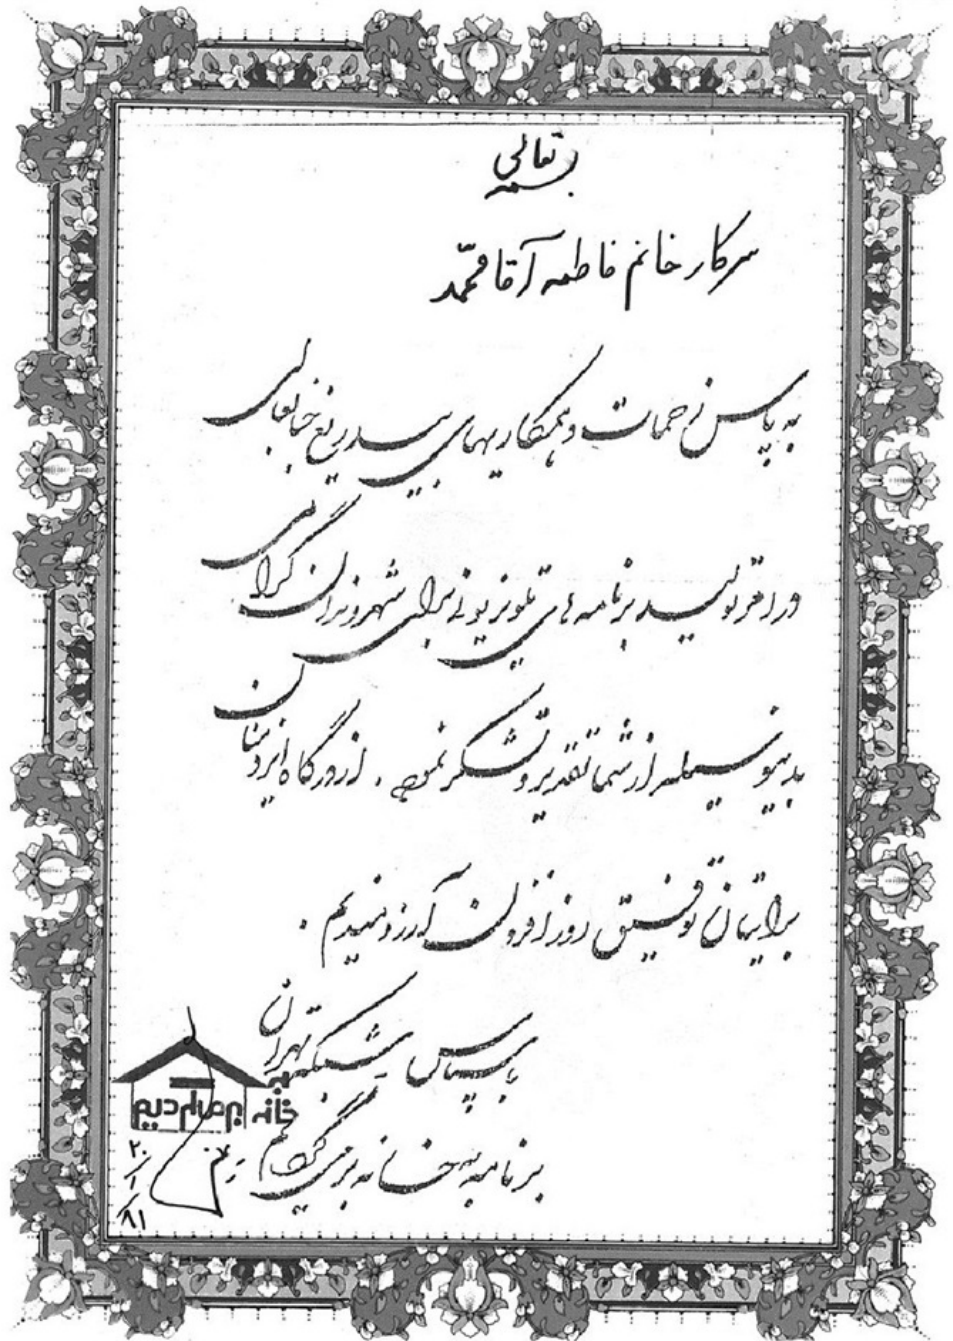 بسمه تعالی
سرکار خانم فاطمه آقامحمد
به پاس زحمات و همکاریهای بیدریغ جنابعالی
در امر تولید برنامه های تلویزیونی برای شهروندان گرامی
بدینوسیله از شما تقدیر و تشکر نموده . از درگاه ایزد منان
برایتان توفیق روز افزون آرزومندیم .
با سپاس شبکه تهران
برنامه به خانه برمی گردیم
به خانه برمیگردیم
۲۰/۱/۸۱